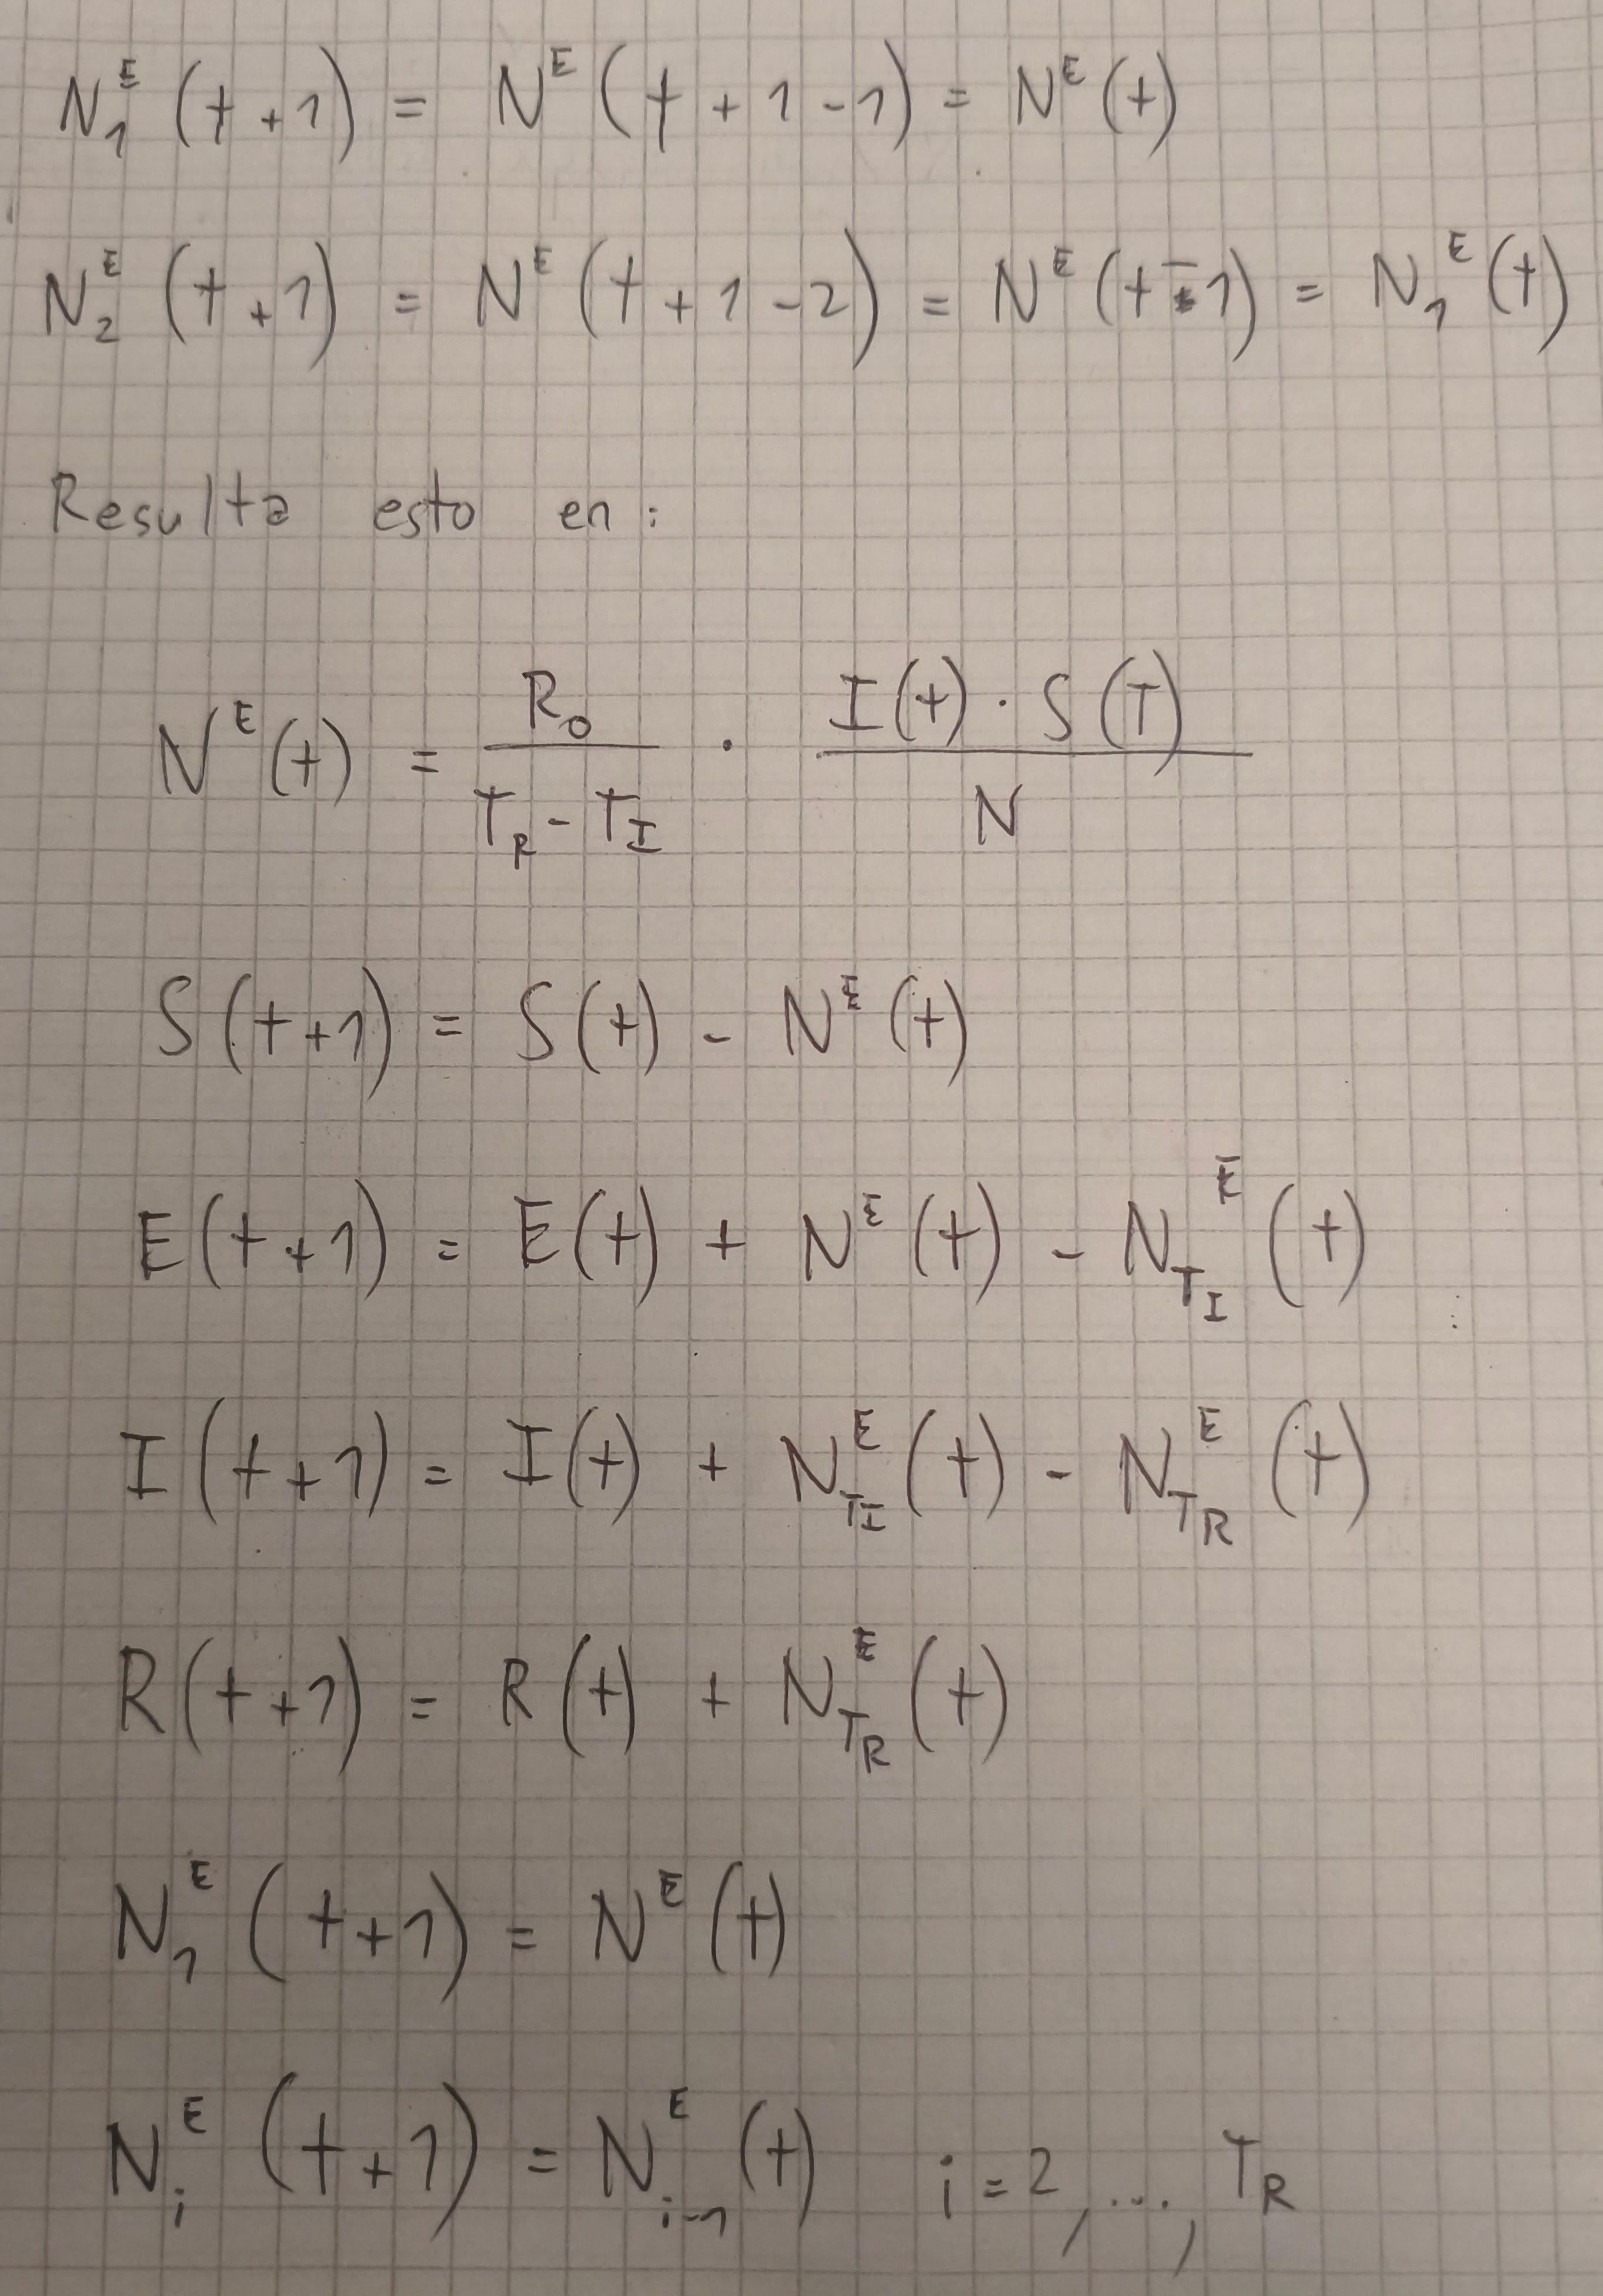 N₁ᴱ (t+1) = Nᴱ (t+1-1) = Nᴱ (t)
N₂ᴱ (t+1) = Nᴱ (t+1-2) = Nᴱ (t-1) = N₁ᴱ (t)
Resulta esto en:
Nᴱ(t) = \frac{R₀}{T_R - T_I} · \frac{I(t) · S(T)}{N}
S(t+1) = S(t) - Nᴱ(t)
E(t+1) = E(t) + Nᴱ(t) - N_{T_I}^E (t)
I(t+1) = I(t) + N_{T_I}^E (t) - N_{T_R}^E (t)
R(t+1) = R(t) + N_{T_R}^E (t)
N₁ᴱ (t+1) = Nᴱ (t)
N_i^E (t+1) = N_{i-1}^E (t) i = 2, ..., T_R